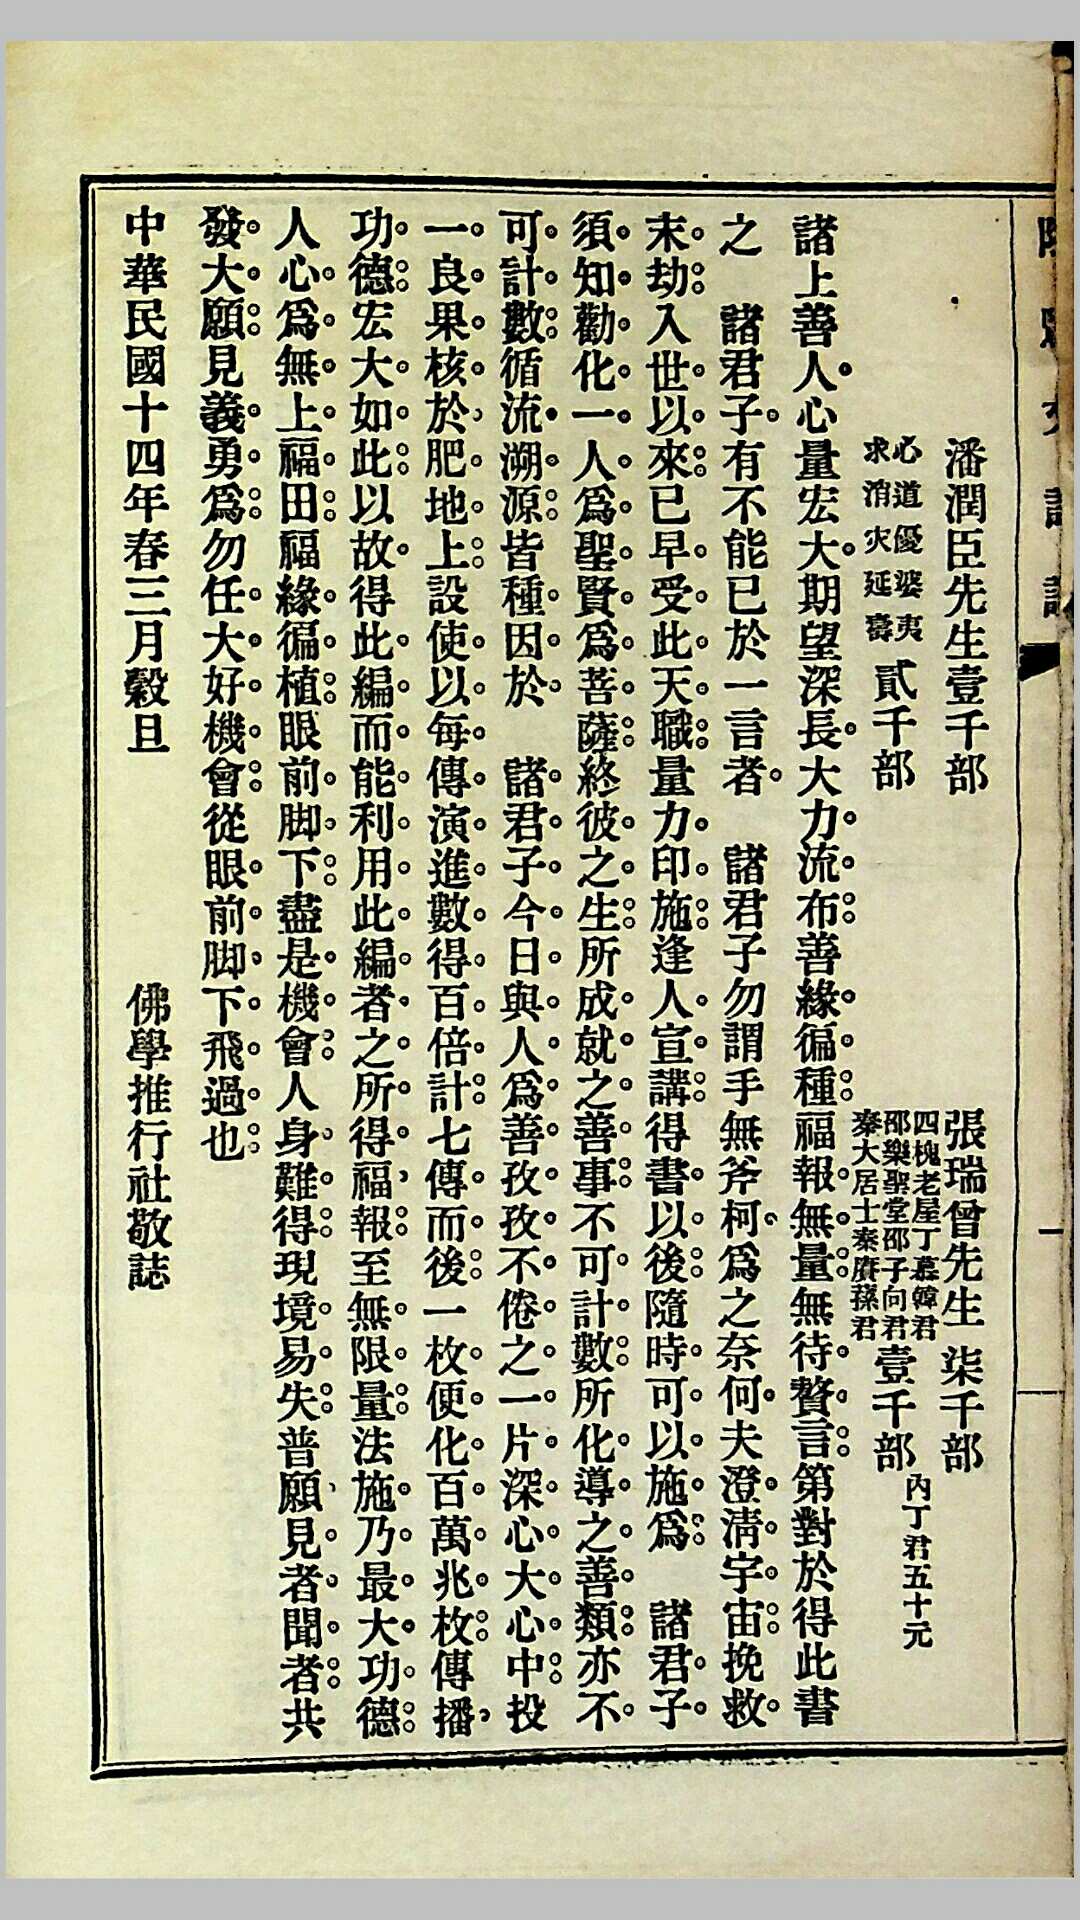 潘潤臣先生壹千部　張瑞曾先生柒千部
心道優婆夷
求消灾延壽
貳千部
四槐老屋丁慕韓君
邵樂聖堂邵子向君
秦大居士秦賡蓀君
壹千部
內丁君五十元
諸上善人心量宏大期望深長大力流布善緣徧種福報無量無待贅言第對於得此書
之　諸君子有不能已於一言者　諸君子勿謂手無斧柯爲之奈何夫澄清宇宙挽救
末劫入世以來已早受此天職量力印施逢人宣講得書以後隨時可以施爲　諸君子
須知勸化一人爲聖賢爲菩薩終彼之生所成就之善事不可計數所化導之善類亦不
可計數循流溯源皆種因於　諸君子今日與人爲善孜孜不倦之一片深心大心中投
一良果核於肥地上設使以每傳演進數得百倍計七傳而後一枚便化百萬兆枚傳播
功德宏大如此以故得此編而能利用此編者之所得福報至無限量法施乃最大功德
人心爲無上福田福緣徧植眼前脚下盡是機會人身難得現境易失普願見者聞者共
發大願見義勇爲勿任大好機會從眼前脚下飛過也
中華民國十四年春三月穀旦　佛學推行社敬誌